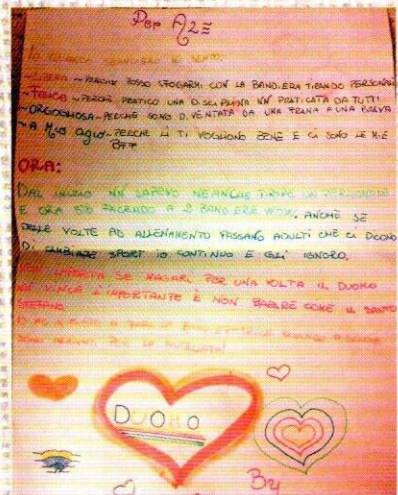 Per A2E
IO QUANDO SBANDIERO MI SENTO:
~LIBERA ~ PERCHÈ POSSO SFOGARMI CON LA BANDIERA TIRANDO PERSONALI
~FELICE ~ PERCHÈ PRATICO UNA DISCIPLINA NN PRATICATA DA TUTTI
~ORGOGLIOSA ~ PERCHÈ SONO DIVENTATA DA UNA FRANA A UNA BRAVA
~A Mio agio ~ PERCHÈ LÌ TI VOGLIONO BENE E CI SONO LE MIE
ORA:
DAL INIZIO NN SAPEVO NEANCHE TIRARE UN PERSONALE
E ORA STO FACENDO A 2 BANDIERE ANCHE SE
DELLE VOLTE AD ALLENAMENTO PASSANO ADULTI CHE CI DICONO
DI CAMBIARE SPORT IO CONTINUO E GLI IGNORO.
NON IMPORTA SE MAGARI PER UNA VOLTA IL DUOMO
NN VINCE L'IMPORTANTE È NON COME IL SANTO
STEFANO.
DUOMO
By